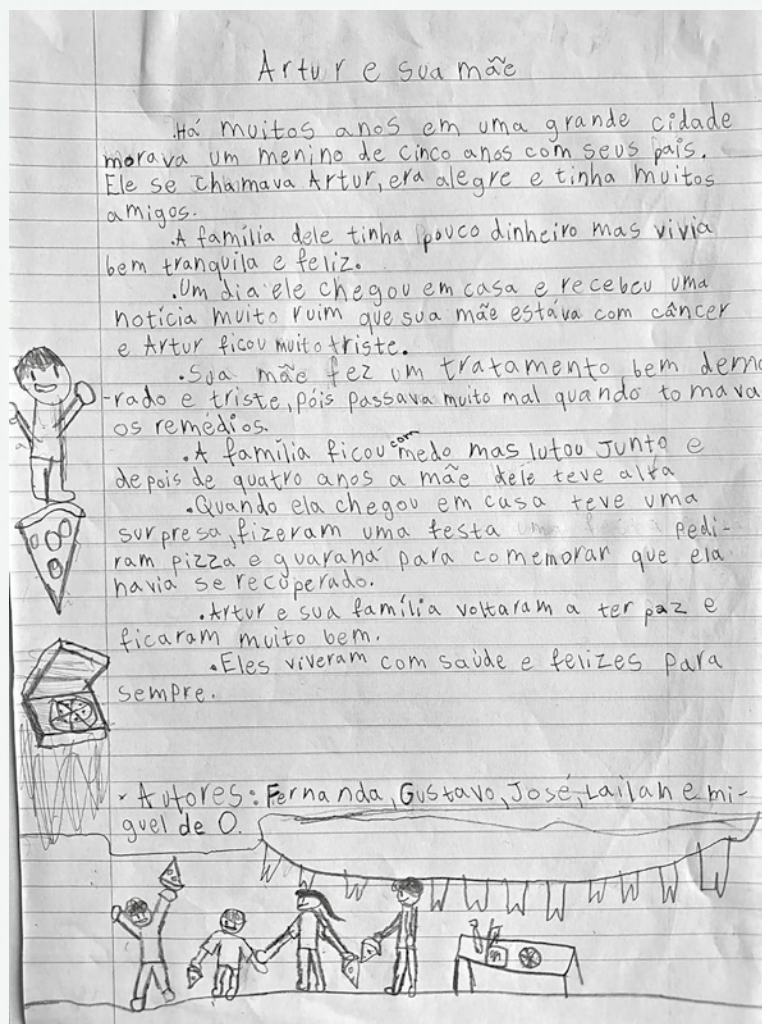 Artur e sua mãe
.Há muitos anos em uma grande cidade
morava um menino de cinco anos com seus pais.
Ele se chamava Artur, era alegre e tinha muitos
amigos.
.A família dele tinha pouco dinheiro mas vivia
bem tranquila e feliz.
.Um dia ele chegou em casa e recebeu uma
notícia muito ruim que sua mãe estáva com câncer
e Artur ficou muito triste.
.Sua mãe fez um tratamento bem demo
-rado e triste, póis passava muito mal quando tomava
os remédios.
.A família ficou com medo mas lutou Junto e
depois de quatro anos a mãe dele teve alta
.Quando ela chegou em casa teve uma
surpresa, fizeram uma festa pedi-
ram pizza e guaraná para comemorar que ela
havia se recuperado.
.Artur e sua família voltaram a ter paz e
ficaram muito bem.
.Eles viveram com saúde e felizes para
sempre.
- Autores: Fernanda, Gustavo, José, Lailah e mi-
guel de O.